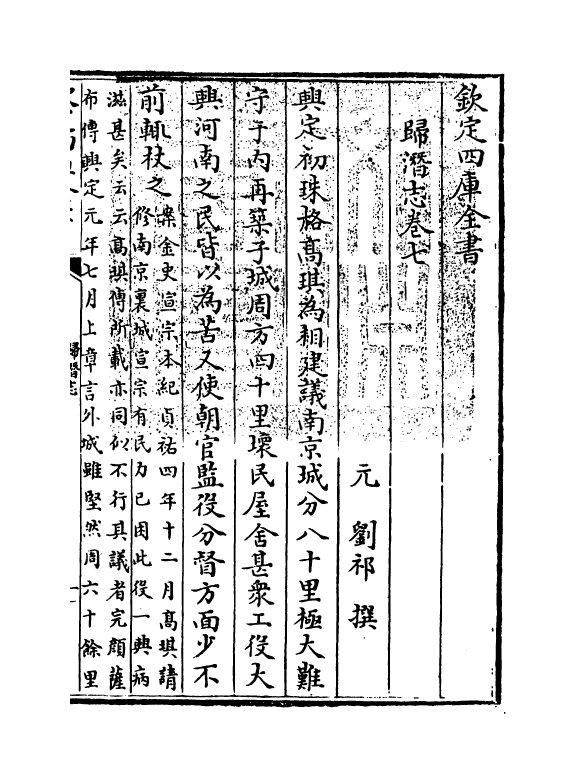 欽定四庫全書
歸潛志卷七
元 劉祁 撰
興定初珠格髙琪為相建議南京城分八十里極大難
守于内再築子城周方四十里壞民屋舍甚衆工役大
興河南之民皆以為苦又使朝官監役分督方面少不
前輒杖之案金史宣宗本紀貞祐四年十二月髙琪請
修南京裏城宣宗有民力已困此役一興病
滋甚矣云云髙琪傳所載亦同似不行其議者完顔薩
布傳興定元年七月上章言外城雖堅然周六十餘里
歸潛志